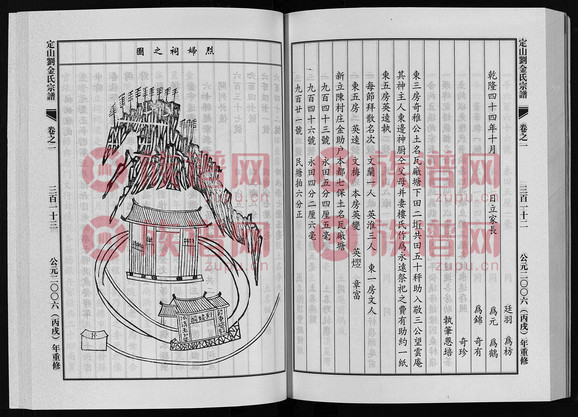 定山劉金氏宗譜
卷之一
三百一十二
公元二〇〇六(丙戌)年重修
乾隆四十四年十月 日立家長
廷羽 為枋
為元 為鶴
為錦 奇有
奇珍
執筆恩培
東三房奇稚公土名瓦廠塘下田二坵共田五十秤助入敬三公望雲庵
其神主人東邊神廚仝父母并妻樓氏竹為永遠祭祀之費有助約一紙
東五房英遠執
每節拜散名次 文蘭一人 英淮三人 東一房文人
東五房 英遠 文梅 本房英變 英煙 章富
新立陳村庄金助户本都七保土名瓦廠塘
九百四十三號 永田五分四厘五毫
九百四十六號 永田四分二厘六毫
九百廿一號 民塘拍六分正
烈婦祠之圖
定山劉金氏宗譜
卷之一
三百一十三
公元二〇〇六(丙戌)年重修
族譜网
zupu.cn